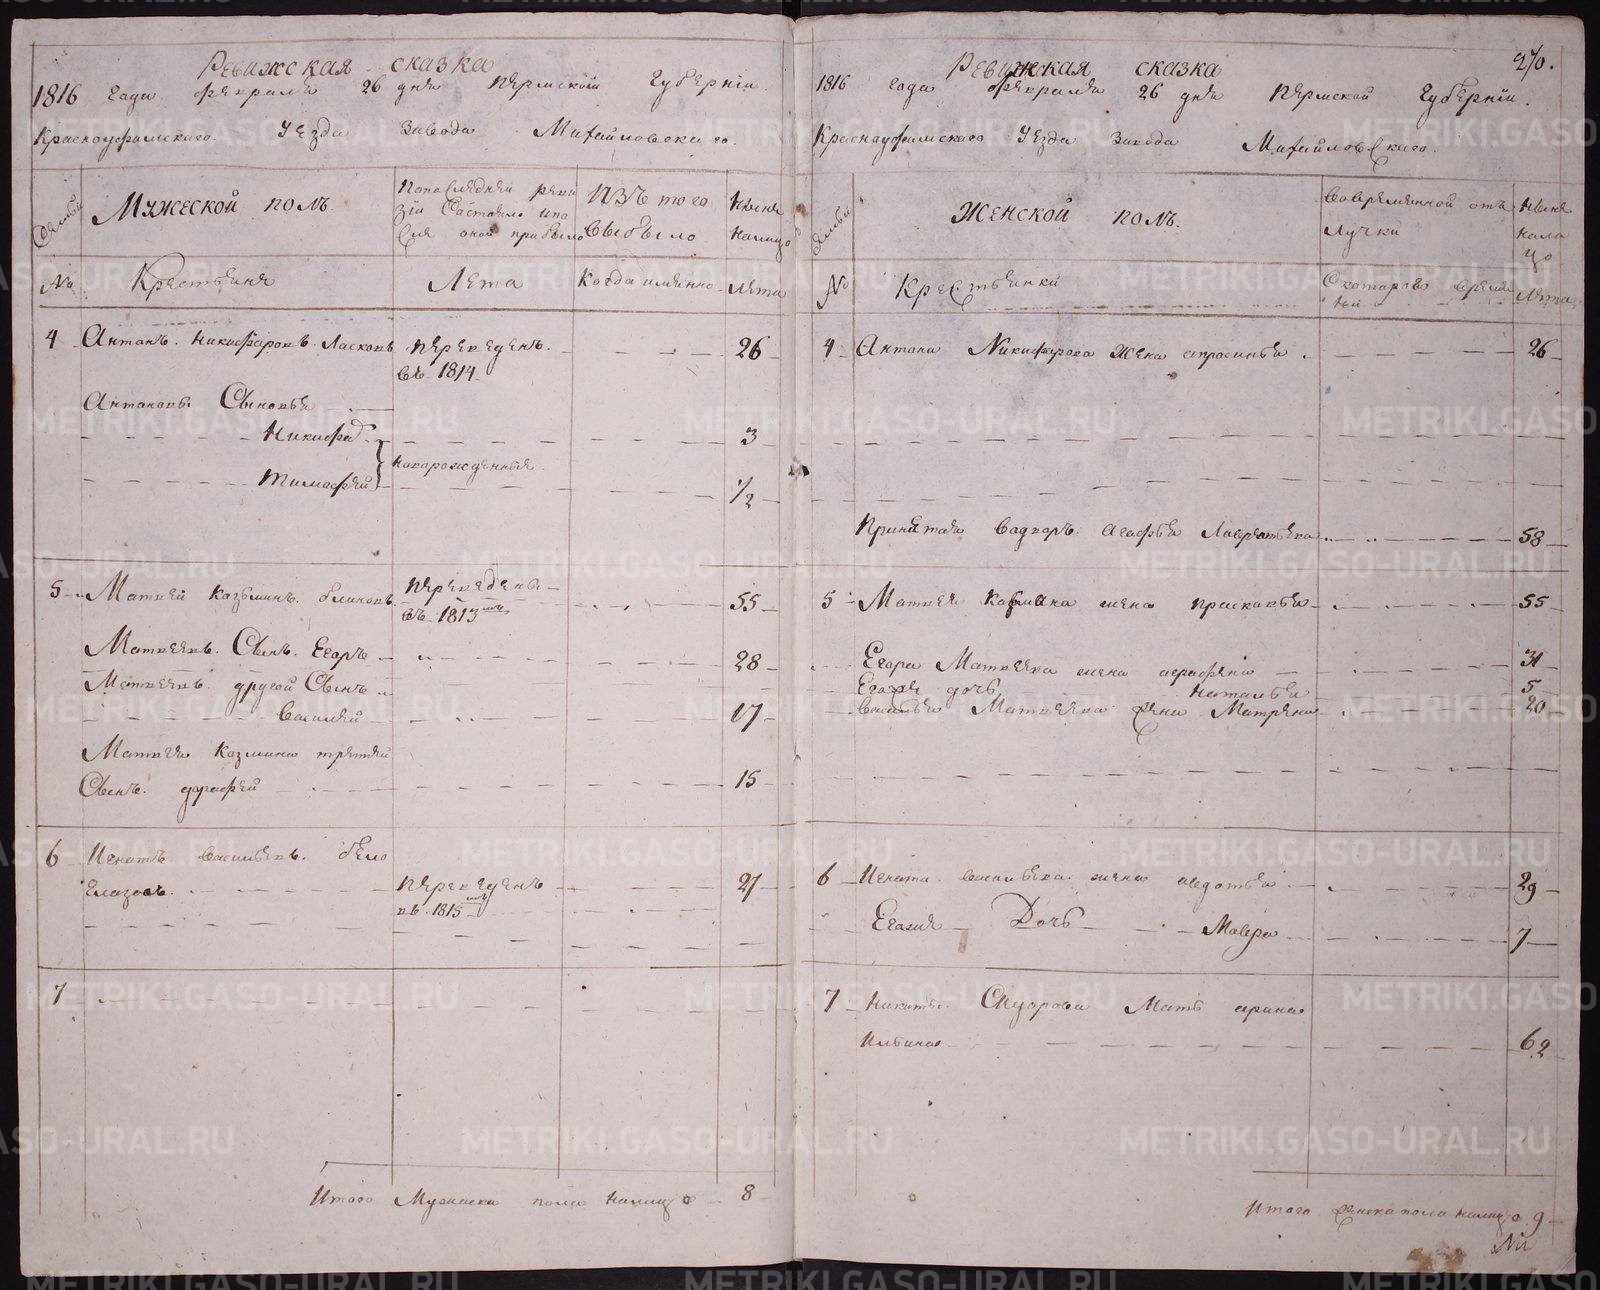 Ревижская сказка
1816 года февраля 26 дня Пермской Губернiи.
Красноуфимскаго Уезда Завода Михайловскаго.
Семьи
Мужеской полъ
Попоследней реви
зiи Состояло ипо
сля оной прибыло
Изъ того
выбыло
Ныня
налицо
№
Крестьяня
Лета
Когда имянно
Лета
4 Антонъ Никифаровъ Ласковъ Переведенъ 26
въ 1814
Антоновы Сыновья
Никифаръ 3
новорожденныя
Тимофей 1/2
5 Матвей Козминъ блиновъ Переведены 55
въ 1813мъ
Матвеевъ Сынъ Егоръ 28
Матвеевъ другой Сынъ
Василей 17
Матвея Козмина третей
Сынъ дорофей 15
6 Игнатъ Васильевъ бело
глазовъ Переведенъ 27
въ 1815мъ
7
Итого Мужеска пола налицо 8
270.
Ревижская сказка
1816 года февраля 26 дня Пермской Губернiи.
Красноуфимскаго Уезда Завода Михайловскаго.
Семьи
Женской полъ
Вовремянной отъ
лучки
Ныня
нали
цо
№
Крестьянки
Скотораго время
ни
Лета
4 Антона Никифарова Жена апросинья 26
Принятая Вадворъ агафья Лаврентьева 58
5 Матвея Козмина жена прасковья 55
Егора Матвеева жена аграфена 31
Егоря дочь наталья 5
Василья Матвеева жена Матрена 20
6 Игната васильева жена авдотья 29
Егожя Дочь Мавра 7
7 Никиты Сидорова Мать арина
Ильина 62
Итого женска пола налицо 9
METRIKI.GASO-URAL.RU